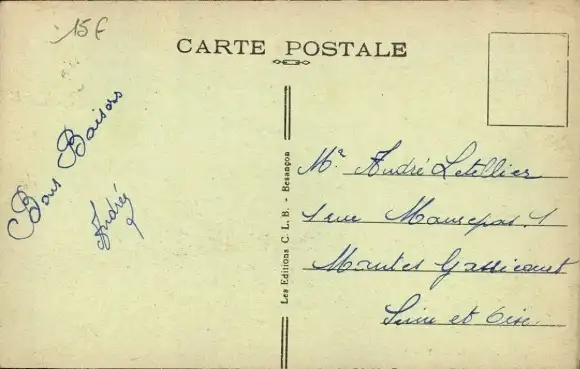 15 F
CARTE POSTALE
Bons Baisers
Andrée
Les Editions C. L. B. - Besançon
Mr André Letellier
1 rue Maurepas. 1
Mantes Gassicourt
Seine et Oise.